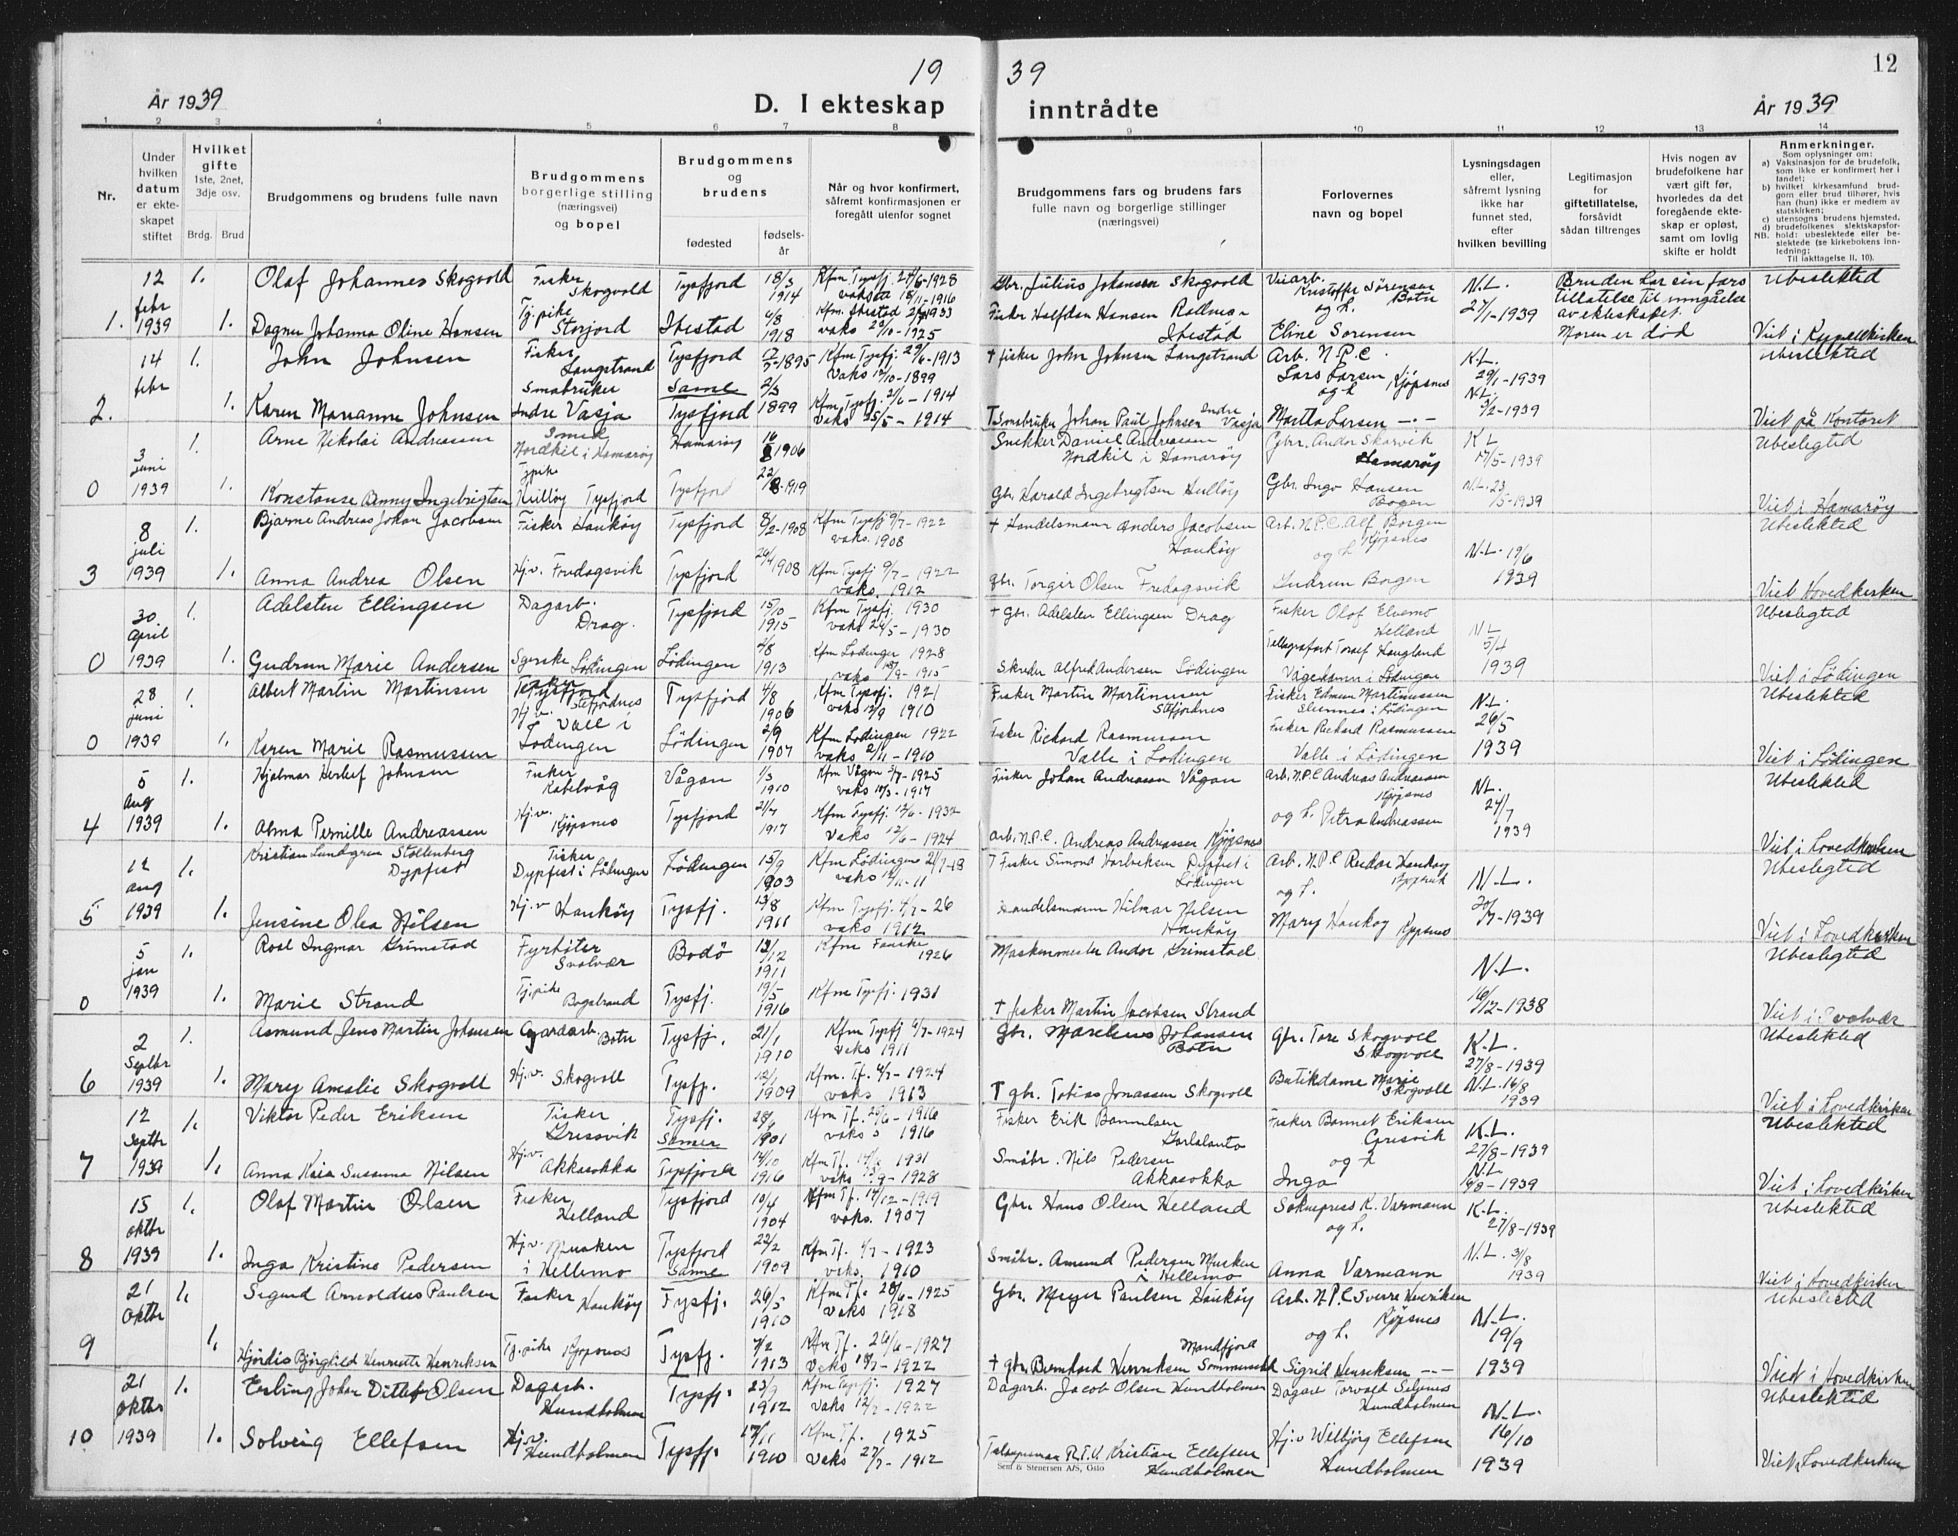 19
39
12
År 1939
D. I ekteskap
inntrådte
År 1939
1 2 3 4 5 6 7 8 9 10 11 12 13 14
Nr.
Under hvilken datum er ekte-skapet stiftet
Hvilket gifte 1ste, 2net, 3dje osv.
Brdg. Brud
Brudgommens og brudens fulle navn
Brudgommens borgerlige stilling (næringsvei) og bopel
Brudgommens og brudens
fødested
fødsels-år
Når og hvor konfirmert, såfremt konfirmasjonen er foregått utenfor sognet
Brudgommens fars og brudens fars fulle navn og borgerlige stillinger (næringsvei)
Forlovernes navn og bopel
Lysningsdagen eller, såfremt lysning ikke har funnet sted, efter hvilken bevilling
Legitimasjon for giftetillatelse, forsåvidt sådan tiltrenges
Hvis nogen av brudefolkene har vært gift før, hvorledes da det foregående ekte-skap er opløst, samt om lovlig skifte er holdt
Anmerkninger.
Som oplysninger om:
a) Vaksinasjon for de brudefolk, som ikke er konfirmert her i landet;
b) hvilket kirkesamfund brud-gom eller brud tilhører, hvis han (hun) ikke er medlem av statskirken;
c) utensogns brudens hjemsted,
d) brudefolkenes slektskapsfor-
NB. hold: ubeslektede eller be-slektede (se kirkebokens inn-ledning:
Til iakttagelse II. 10).
1. 12 febr 1939 1. Olaf Johannes Skogvold Fisker Skogvold Tysfjord 18/3 1914 Kfm Tysfj. 24/6-1928 Gbr. Julius Johansen Skogvold Veiarb. Kristoffer Sørensen Botn N.L. 27/1-1939 Bruden har sin fars tillatelse til inngåelse av ekteskapet. Moren er død Ubeslekted
1. Dagny Johanna Oline Hansen Tj.pike Storjord Ibestad 1918 Fisker Halfdan Hansen Ibestad og h. Eline Sorensen Viet i Kappellkirken
2. 14 febr 1. John Johnsen Fisker Langstrand Tysfjord 1895 Kfm Tysfj. 29/6-1913 Vaks 12/10-1899 + fisker John Johnsen Langstrand Arb. N.P.C. Lars Larsen Kjøpsnes K.L. 29/1-1939 Ubeslekted
1. Karen Marianne Johnsen Småbruker Indre Vasja Same Tysfjord 2/3 1899 Kfm Tysfj. 21/6-1914 Vaks 25/5-1914 Småbruker Johan Paul Johnsen Indre Vasja og h Marta Larsen N.L. 1939 Viet på Kontoret
0 3 juni 1939 1. Arne Nikolai Andreassen Smed Nordkil i Hamarøy Hamarøy 1906 Snekker Daniel Andreassen Nordkil i Hamarøy Gbr. Andor Skarvik Hamarøy K L 17/5-1939 Ubeslegted
1. Konstanse Anny Ingebrigtsen Tj.pike Hulløy Tysfjord Tysfjord 1919 Gbr. Harald Ingebregtsen Hulløy Gbr. Inga Hansen Bogen N.L. 23/5-1939 Viet i Hamarøy
3 8 juli 1939 1. Bjarne Andreas Johan Jacobsen Fisker Haukøy Tysfjord 8/2-1908 Kfm Tysfj 9/7-1922 vaks. 1908 + Handelsmann Anders Jacobsen Haukøy Arb. N.P.C. Alf Borgen Kjøpsnes N.L. 19/6 1939 Ubeslekted
1. Anna Andrea Olsen Hj.v. Fredagsvik Tysfjord 1908 Kfm Tysfj 9/7-1922 vaks. 1912 gbr. Torgir Olsen Fredagsvik og h Gudrun Borgen Viet Hovedkirken
0 30 april 1939 1. Adelsten Ellingsen Dagarb. Drag. Tysfjord 15/10 1915 Kfm Tysfj. 1930 vaks 24/5-1930 + gbr. Adelsten Ellingsen Drag Fisker Olof Elvemo Helland N L 5/4 1939 Ubeslegted
1. Gudrun Marie Andersen Lødingen Lødingen 1913 Kfm Lødingen 1928 Skreder Alfred Andersen Lødingen Haugland Vågehamn i Lødingen Viet i Lødingen
0 28 juni 1939 1. Albert Martin Martinsen Tysfjord Stefjordnes Tysfjord 4/8 1906 Kfm Tysfj. 1921 vaks 12/9 1910 Fisker Martin Martinussen Stefjordnes Fisker Edmun Martinussen i Lødingen N.L. 26/5 1939 Ubeslekted
1. Karen Marie Rasmussen Hj.v. Valle i Lødingen Lødingen 2/9 1907 Kfm Lødingen 1922 vaks 2/11-1910 Fisker Rickard Rasmussen Valle i Lødingen Fisker Richard Rasmussen Valle i Lødingen Viet i Lødingen
4 5 Aug 1939 1. Hjalmar Herleif Johnsen Fisker Kabelvåg Vågan 1/3 1910 Kfm Vågan 5/7-1925 Fisker Johan Andreassen Vågan Arb. N.P.C Andreas Andreassen Kjøpsnes N.L. 24/7 1939 Ubeslekted
1. Alma Pernille Andreassen Hj.v. Kjøpsnes Tysfjord 21/7 1917 Kfm Tysfj. 12/6-1932 Vaks 12/6-1924 arb. N.P.C. Andreas Andreassen Kjøpsnes og h. Petra Andreassen Viet i Hovedkirken
5 12 aug 1939 1. Kristian Lundgren Stoltenberg Dypfest Fisker Dypfest i Lødingen Lødingen 15/9 1903 Kfm Lødingen + Fisker Simond Dypfest i Lødingen Arb. N.P.C Reidar Haukøy N.L. 1939 Ubeslegted
1. Jensine Olea Nilsen Hj.v Haukøy Tysfj. 13/8 1911 Kfm Tysfj. 4/7-26 vaks 1912 Handelsmann Hilmar Nilsen Haukøy og h. Mary Haukøy Kjøpsnes Viet i Hovedkirken
0 5 jan 1939 1. Roel Ingmar Grimstad Fyrbøter Svolvær Bodø 1911 Kfm Fauske 1926 Maskinmester Andor Grimstad N.L. 16/12-1938 Ubeslegted
1. Marie Strand Tj.pike Bogstrand Tysfj. 19/5 1916 Kfm Tysfj. 1931 + fisker Martin Jacobsen Strand Viet i Svolvær
6 2 Septbr 1939 1. Asmund Jens Martin Johansen Gårdarb. Botn Tysfj. 21/1 1910 Kfm Tysfj 6/7-1924 Vaks 1911 Gbr. Marelius Johansen Botn Gbr. Tore Skogvoll Skogvoll K.L. 27/8-1939 Ubeslekted
1. Mary Amalie Skogvoll Hj.v. Skogvoll Tysfj. 12/1 1909 Kfm. Tf. 4/7-1924 vaks 1913 + gbr. Tobias Jonassen Skogvoll Butikdame Marie Skogvoll N.L. 16/8 1939 Viet i Hovedkirken
7 12 Septbr 1939 1. Viktor Peder Eriksen Fisker Grissvik Tysfj. Samer 1901 Kfm Tf. 20/6-1916 vaks 1916 Fisker Erik Fisker Bannet Eriksen Grisvik K.L. 27/8-1939 Ubeslekted
1. Anna Kaia Susanna Nilsen Hj.v. Akkasokka Tysfjord 14/10 1916 Kfm Tf. 1931 vaks 1928 Småbr. Nils Pedersen Akkasokka og h Inga N.L. 6/8-1939 Viet i Hovedkirken
8 15 oktbr 1939 1. Olaf Martin Olsen Fisker Helland Tysfjord 10/4 1904 Kfm Tf. 14/12-1919 vaks. 1907 Gbr. Hans Olsen Helland Soknepress K. Varmann K.L. 27/8-1939 Ubeslekted
1. Inga Kristine Pedersen Hj.v. Musken i Hellemo Tysfjord Samme 22/2 1909 Kfm Tf. 1/7-1923 vaks. 1910 Småbr. Amund Pedersen Musken i Hellemo og h. Anna Varmann N.L. 3/8 1939 Viet i Hovedkirken
9 21 Oktbr 1. Sigurd Arnoldus Paulsen Fisker Haukøy Tysfj. 26/5 1910 Kfm Tf. 28/6-1925 vaks 1918 Gbr. Meyer Paulsen Haukøy Arb. N.P.C Sverre Henriksen Kjøpsnes N.L. 19/9 1939 Ubeslekted
1. Hjørdis Bjørghild Henriette Henriksen Tj.pike Kjøpsnes Tysfj. 7/2 1913 Kfm Tf. 26/6-1927 Vaks 18/7-1922 + gbr. Bernhard Henriksen Mandfjord og h. Sigrid Henriksen Viet i Hovedkirken
10 21 oktbr 1939 1. Erling Johan Ditlef Olsen Dagarb. Hundholmen Tysfj. 23/9 1912 Kfm Tysfj. 1927 vaks 12/7-1922 Dagarb. Jacob Olsen Hundholmen Dagarb Torvald Selsnes Hundholmen N.L. 16/10 1939 Ubeslekted
1. Solveig Ellefsen Hj.v. Hundholmen Tysfj. 17/11 1910 Kfm Tf. 1925 vaks 27/7-1912 Kristian Ellefsen Hundholmen Hj.v Wilbjørg Ellefsen Hundholmen Viet i Hovedkirken
Sem & Stenersen A/S, Oslo